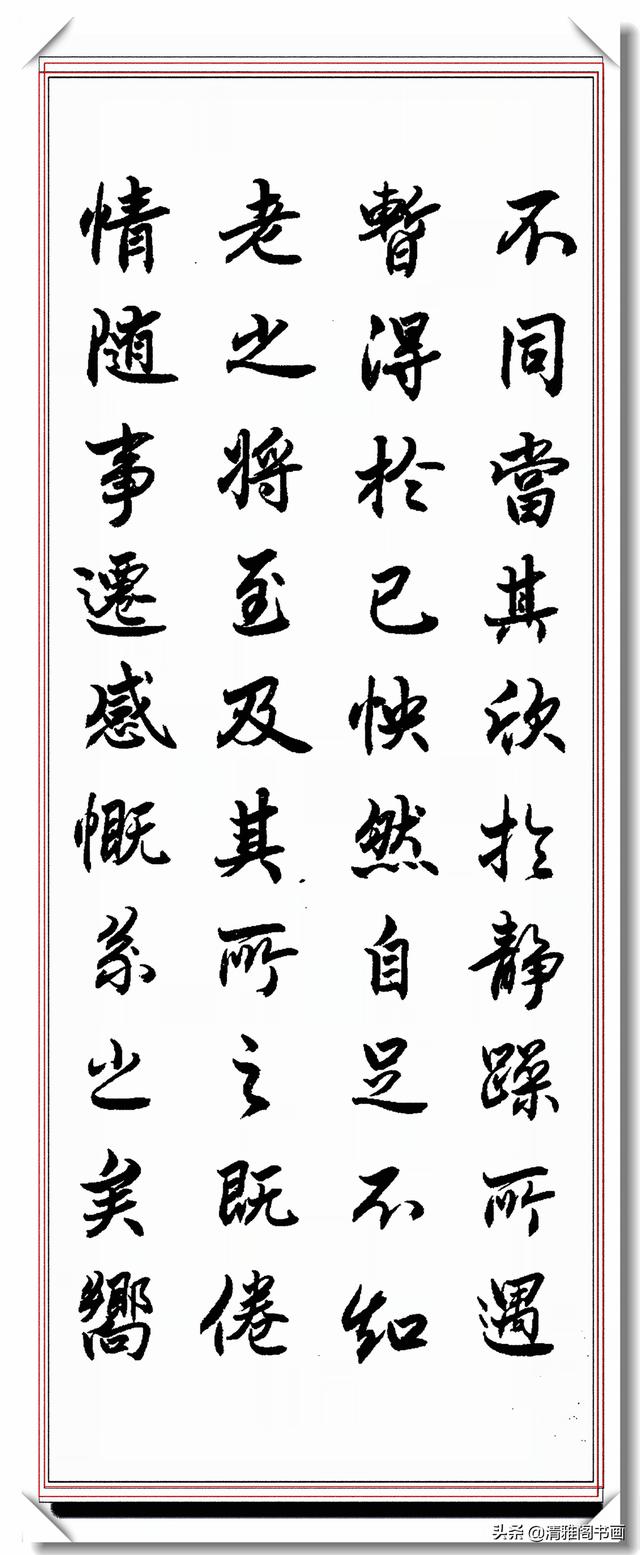 不同當其欣於静躁所遇
暫得於己怏然自足不知
老之将至及其所之既倦
情随事遷感慨系之矣嚮
头条 @清雅阁书画